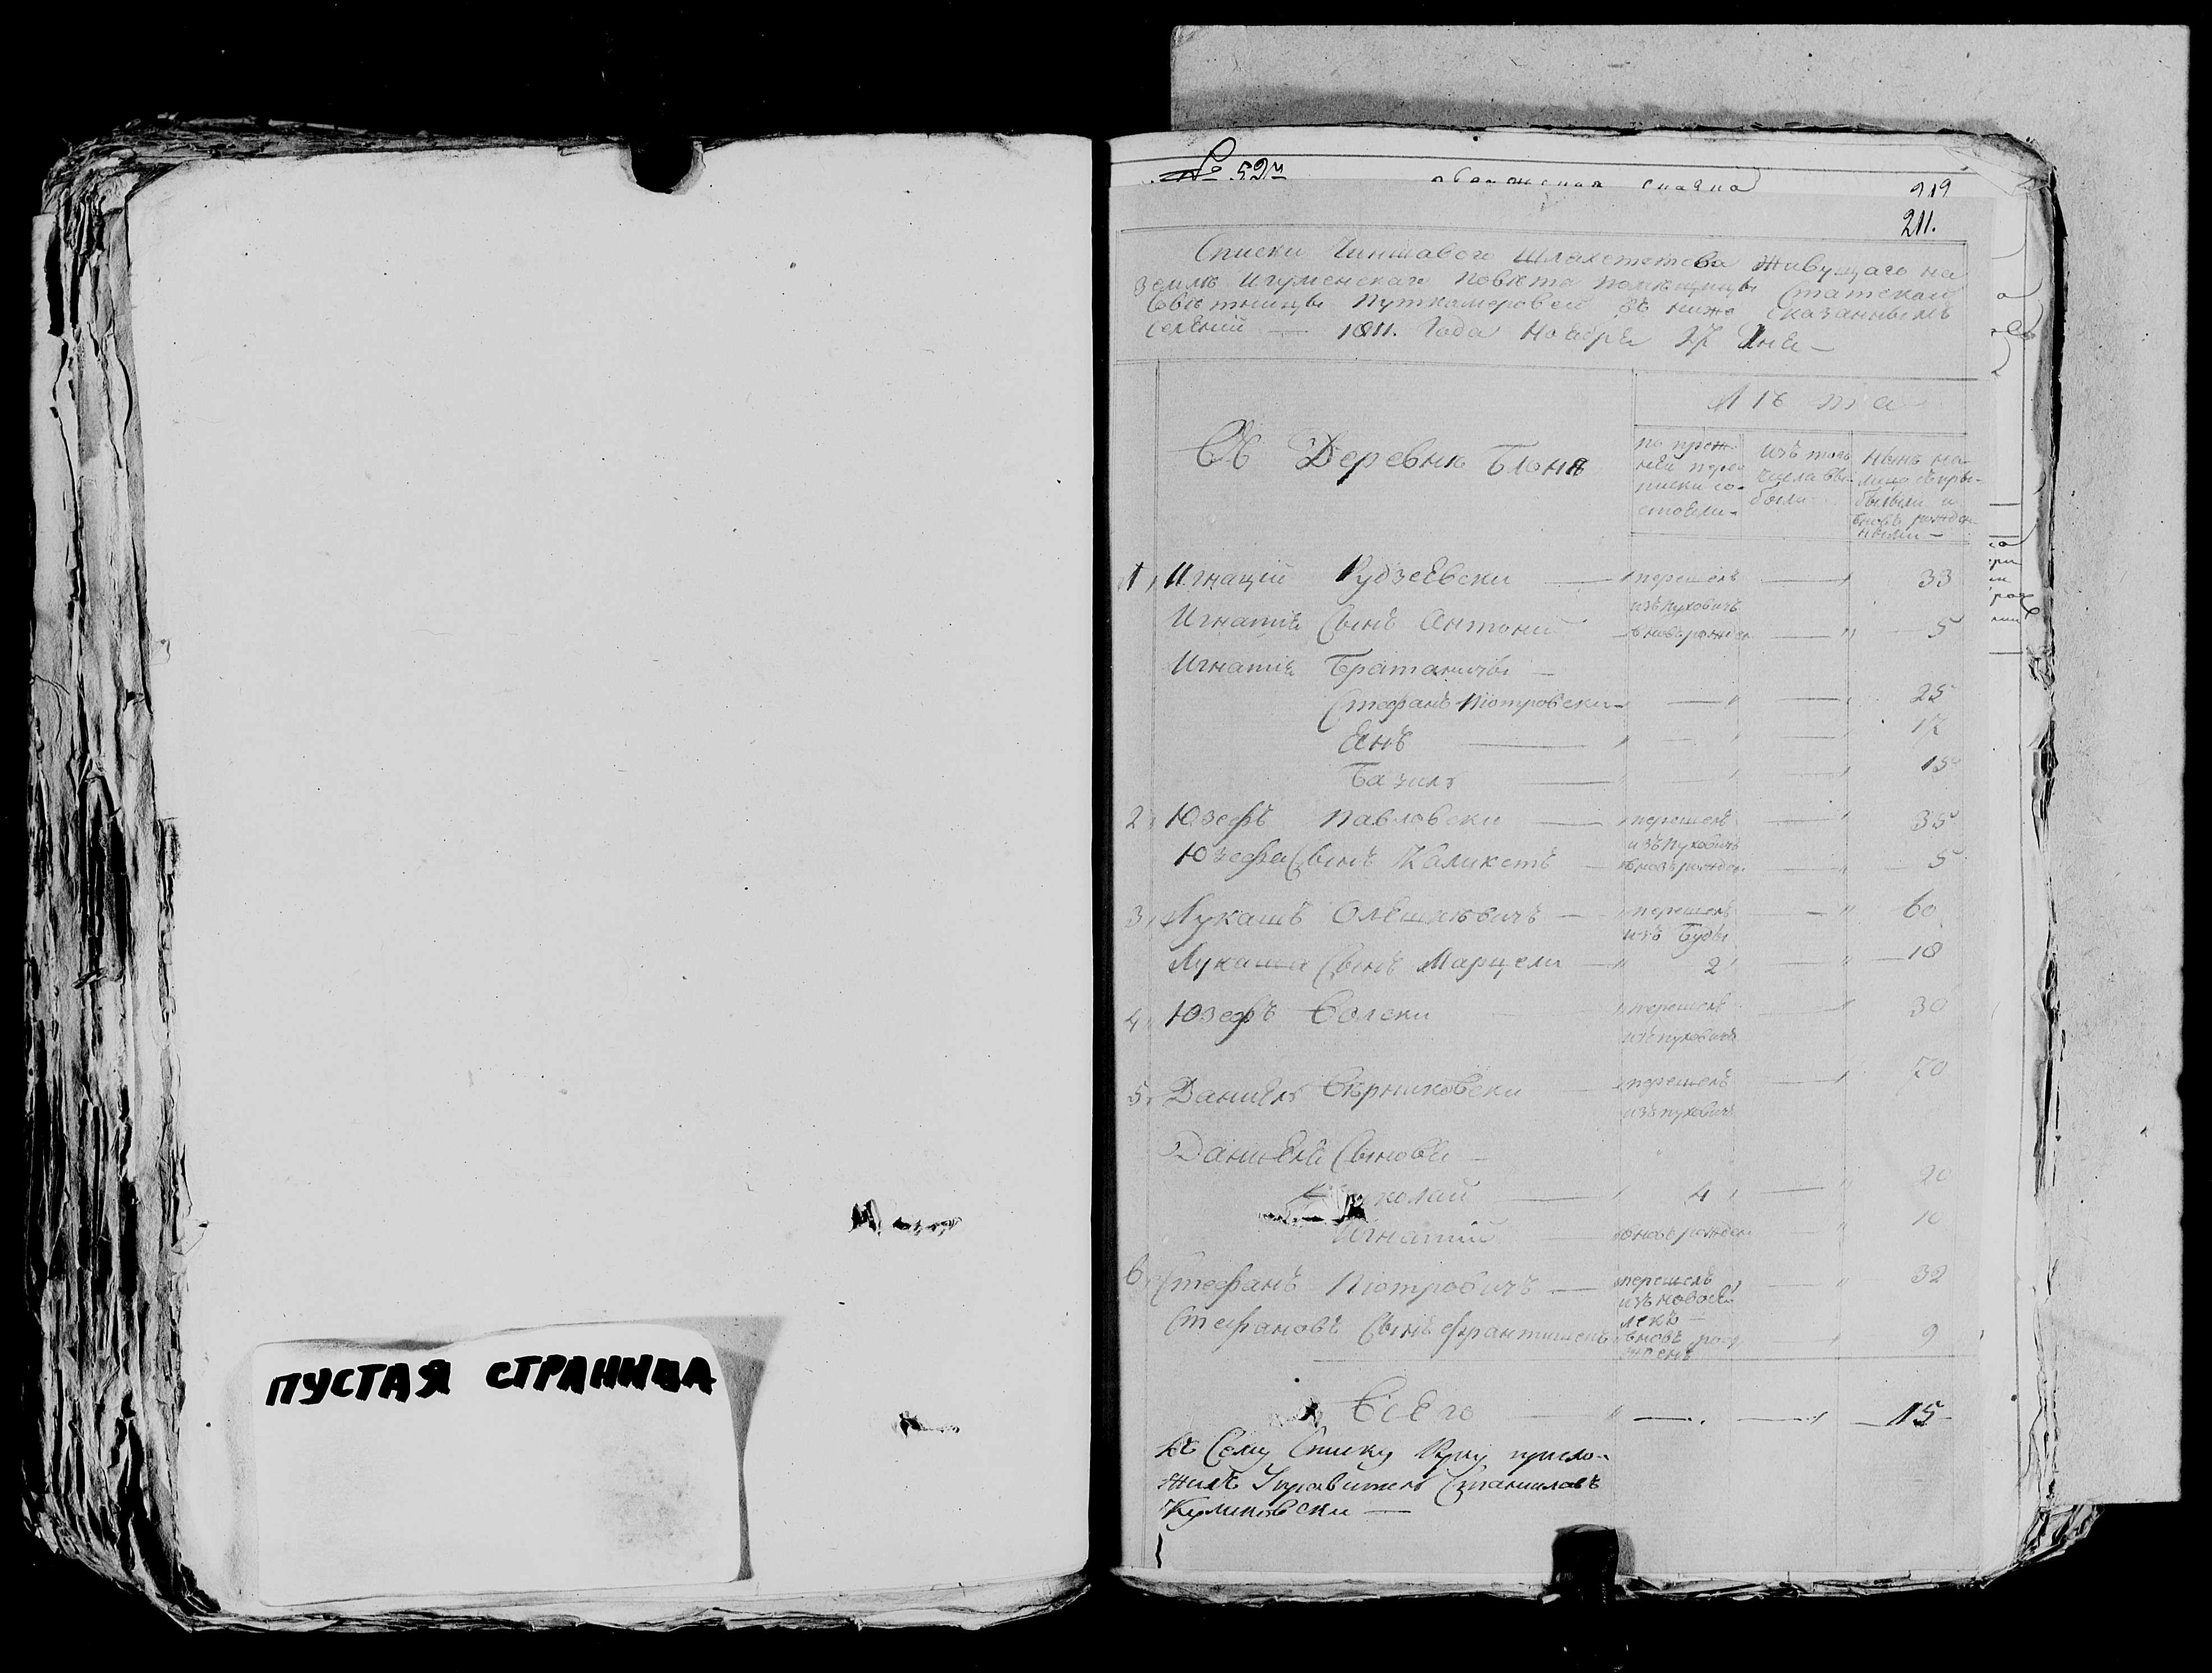 ПУСТАЯ СТРАНИЦА
№ 52й
219
211.
Списки Чиншавого Шляхетства живущаго на
землѣ Игуменскаго Повѣта помѣщицы Статской
Совѣтницы Путкамеровой въ ниже сказанныхъ
селѣний — 1811. Года Ноября 27 Дня —
Лѣта
Въ Деревнѣ Блонѣ
по преж-
ней пере-
писки со-
стояли-
изъ того
числа вы-
были
нынѣ на
лицо съ при-
былыми и
вновь рожден-
ными —
1, Игнацій Рудзеевски — перешелъ — 33
изъ Пуховичъ
Игнатія Сынъ Антоній вновь рожден — 5
Игнатія Братаничи —
Стефанъ Піотровски — 25
Янъ — 17
Базиль — 15
2, Юзефъ Павловски — перешелъ — 35
изъ Пуховичъ
Юзефа Сынъ Каликстъ — вновь рожден — 5
3, Лукашъ Олешкевичъ — перешелъ — 60
изъ Буды
Лукаша Сынъ Марцели — 2 — 18
4, Юзефъ Волски перешелъ — 30
изъ пуховичъ
5, Даниель перешелъ — 70
изъ пуховичъ
Даниеля Сыновья —
Николай — 4 — 20
Игнатий — вновь рожден 10
6, Стефанъ Піотровичъ — перешелъ — 32
изъ
Стефановъ Сынъ Франтишекъ вновь рож- — 9
денъ
Всего — 15
Къ Сему Списку Руку прило-
жилъ Управитель Станиславъ
Куликовски —